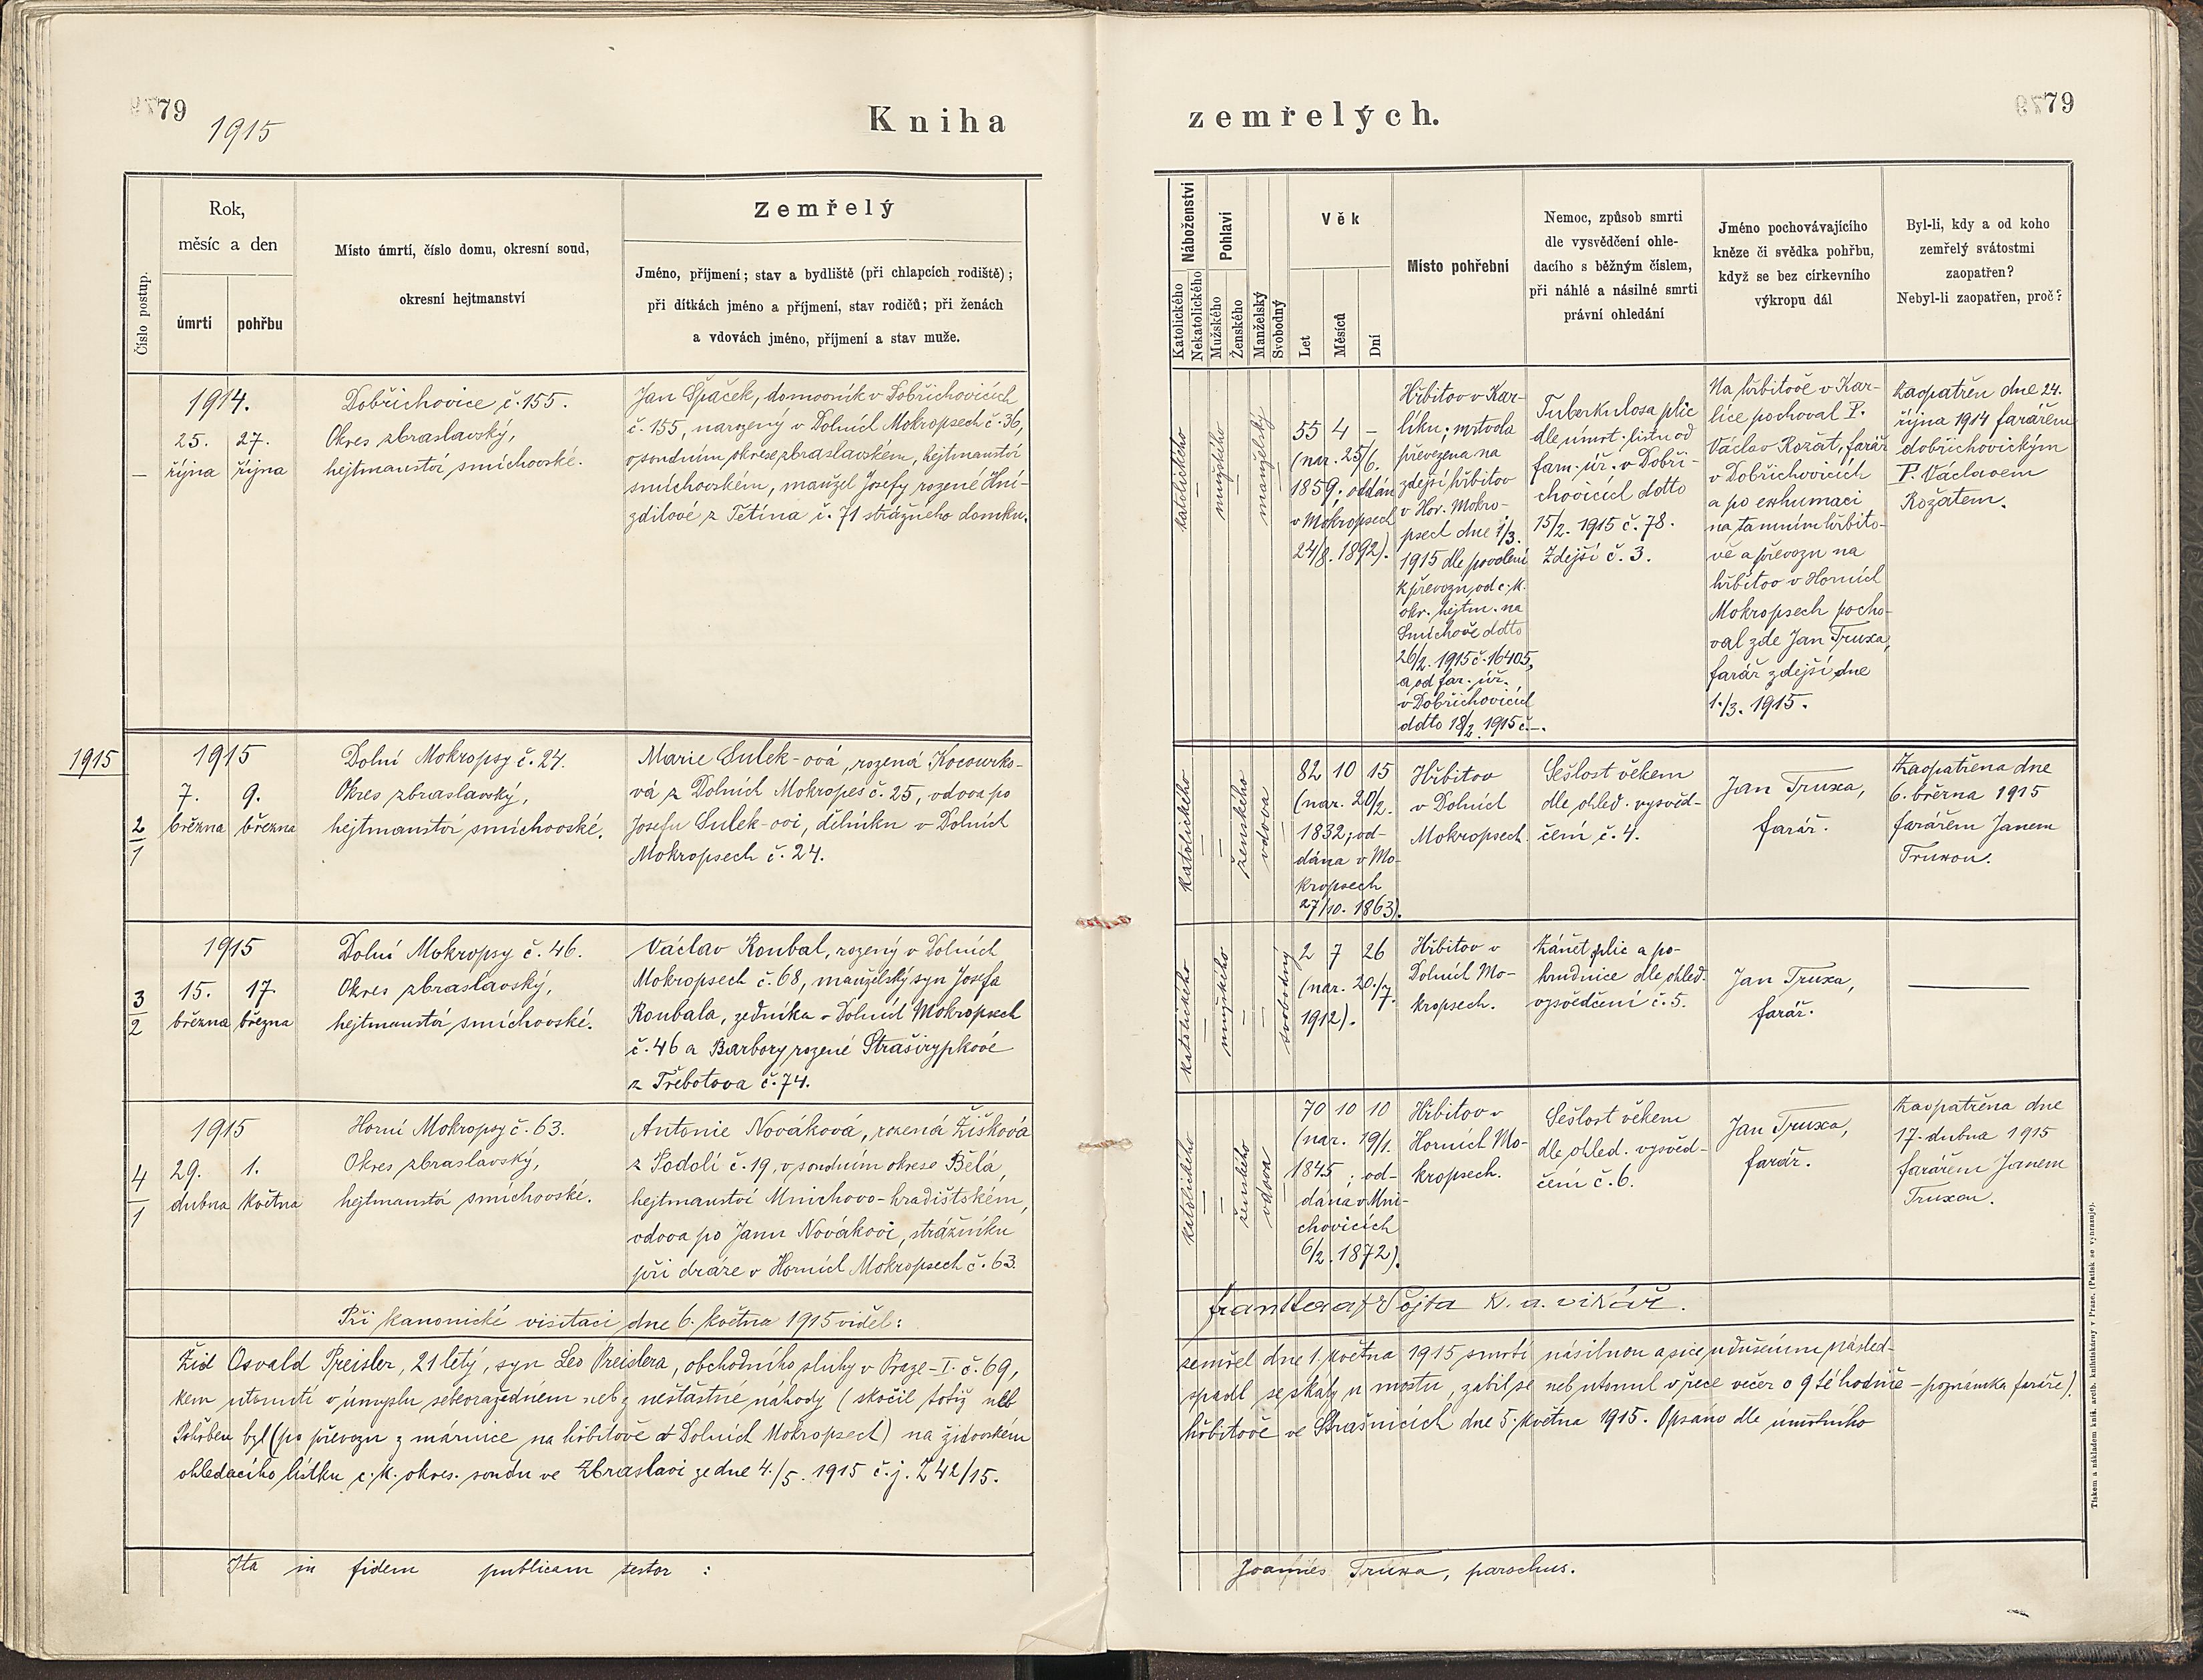 79
1915
Kniha
zemřelých.
79
Číslo postup.
Rok,
měsíc a den
úmrtí
pohřbu
Místo úmrtí, číslo domu, okresní soud,
okresní hejtmanství
Zemřelý
Jméno, příjmení; stav a bydliště (při chlapcích rodiště);
při dítkách jméno a příjmení, stav rodičů; při ženách
a vdovách jméno, příjmení a stav muže.
Náboženství
Katolického
Nekatolického
Pohlaví
Mužského
Ženského
Manželský
Svobodný
Věk
Let
Měsíců
Dní
Místo pohřební
Nemoc, způsob smrti
dle vysvědčení ohle-
dacího s běžným číslem,
při náhlé a násilné smrti
právní ohledání
Jméno pochovávajícího
kněze či svědka pohřbu,
když se bez církevního
výkropu dál
Byl-li, kdy a od koho
zemřelý svátostmi
zaopatřen?
Nebyl-li zaopatřen, proč?
—
1914.
25. 27.
října října
Dobřichovice č. 155.
Okres zbraslavský,
hejtmanství smíchovské.
Jan Špaček, domovník v Dobřichovicích
č. 155, narozený v Dolních Mokropsech č. 36,
v soudním okrese zbraslavském, hejtmanství
smíchovském, manžel Josefy rozené Hní-
zdilové z Tetína č. 71 strážného domku.
katolického
—
mužského
—
manželský
—
55 4 —
(nar. 25/6.
1859; oddán
v Mokropsech
24/8. 1892).
Hřbitov v Kar-
líku; mrtvola
převezena na
zdejší hřbitov
v Hor. Mokro-
psech dne 1/3.
1915 dle povolení
k převozu od c. k.
okr. hejtm. na
Smíchově ddto
26/2. 1915 č. 16405,
a od far. úř.
v Dobřichovicích
ddto 18/2. 1915 č. —.
Tuberkulosa plic
dle úmrt. listu od
far. úř. v Dobři-
chovicích ddto
15/2. 1915 č. 78.
Zdejší č. 3.
Na hřbitově v Kar-
líce pochoval P.
Václav Rožat, farář
v Dobřichovicích
a po exhumaci
na tamním hřbito-
vě a převozu na
hřbitov v Horních
Mokropsech pocho-
val zde Jan Truxa,
farář zdejší dne
1./3. 1915.
Zaopatřen dne 24.
října 1914 farářem
dobřichovickým
P. Václavem
Rožatem.
1915
2/1
1915
7. 9.
března března
Dolní Mokropsy č. 24.
Okres zbraslavský,
hejtmanství smíchovské.
Marie Sulek-ová, rozená Kocourko-
vá z Dolních Mokropes č. 25, vdova po
Josefu Sulek-ovi, dělníku v Dolních
Mokropsech č. 24.
katolického
—
—
ženského
vdova
—
82 10 15
(nar. 20/2.
1832; od-
dána v Mo-
kropsech
27/10. 1863).
Hřbitov
v Dolních
Mokropsech.
Sešlost věkem
dle ohled. vysvěd-
čení č. 4.
Jan Truxa,
farář.
Zaopatřena dne
6. března 1915
farářem Janem
Truxou.
3/2
1915
15. 17.
března března
Dolní Mokropsy č. 46.
Okres zbraslavský,
hejtmanství smíchovské.
Václav Roubal, rozený v Dolních
Mokropsech č. 68, manželský syn Josefa
Roubala, zedníka v Dolních Mokropsech
č. 46 a Barbory rozené Straširypkové
z Třebotova č. 74.
katolického
—
mužského
—
—
svobodný
2 7 26
(nar. 20./7.
1912).
Hřbitov v
Dolních Mo-
kropsech.
Zánět plic a po-
hrudnice dle ohled.
vysvědčení č. 5.
Jan Truxa,
farář.
—
4/1
1915
29. 1.
dubna května
Horní Mokropsy č. 63.
Okres zbraslavský,
hejtmanství smíchovské.
Antonie Nováková, rozená Žišková
z Podolí č. 19, v soudním okrese Bělá,
hejtmanství Mnichovo-hradištském,
vdova po Janu Novákovi, strážníku
při dráze v Horních Mokropsech č. 63.
katolického
—
—
ženského
vdova
—
70 10 10
(nar. 19/1.
1845; od-
dána v Mni-
chovicích
6/2. 1872).
Hřbitov v
Horních Mo-
kropsech.
Sešlost věkem
dle ohled. vysvěd-
čení č. 6.
Jan Truxa,
farář.
Zaopatřena dne
17. dubna 1915
farářem Janem
Truxou.
Při kanonické visitaci dne 6. května 1915 viděl:
Vojta k. a. vikář.
Žid Osvald Preisler, 21 letý, syn Leo Preislera, obchodního sluhy v Praze-I. č. 69, zemřel dne 1. května 1915 smrtí násilnou a sice udušením násled-
kem utonutí v úmyslu sebevražedném neb z nešťastné náhody (skočil totiž neb spadl se skály u mostu, zabil se neb utonul v řece večer o 9té hodině – poznámka faráře).
Pohřben byl (po převozu z márnice na hřbitově v Dolních Mokropsech) na židovském hřbitově ve Strašnicích dne 5. května 1915. Opsáno dle úmrtního
ohledacího lístku c. k. okres. soudu ve Zbraslavi ze dne 4./5. 1915 č. j. Z 42/15.
Ita in fidem publicam testor : Joannes Truxa, parochus.
Tiskem a nákladem kníž. arcib. knihtiskárny v Praze. (Patisk se vyhrazuje).